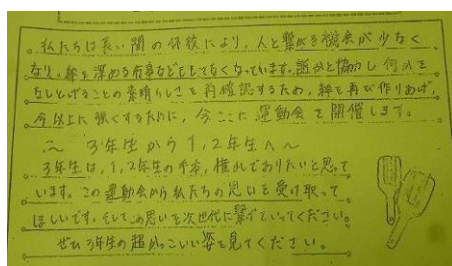 私たちは長い間の休校により、人と繋がる機会が少なく
なり、絆を深める行事などもなくなっています。誰かと協力し何かを
なしとげることの素晴らしさを再確認するため、絆を再び作りあげ、
今以上に強くするために、今ここに運動会を開催します。
~ 3年生から1,2年生へ ~
3年生は、1,2年生の手本、憧れでありたいと思って
います。この運動会から私たちの思いを受け取って
ほしいです。そしてこの思いを次世代に繋いでいってください。
ぜひ3年生の超かっこいい姿を見てください。